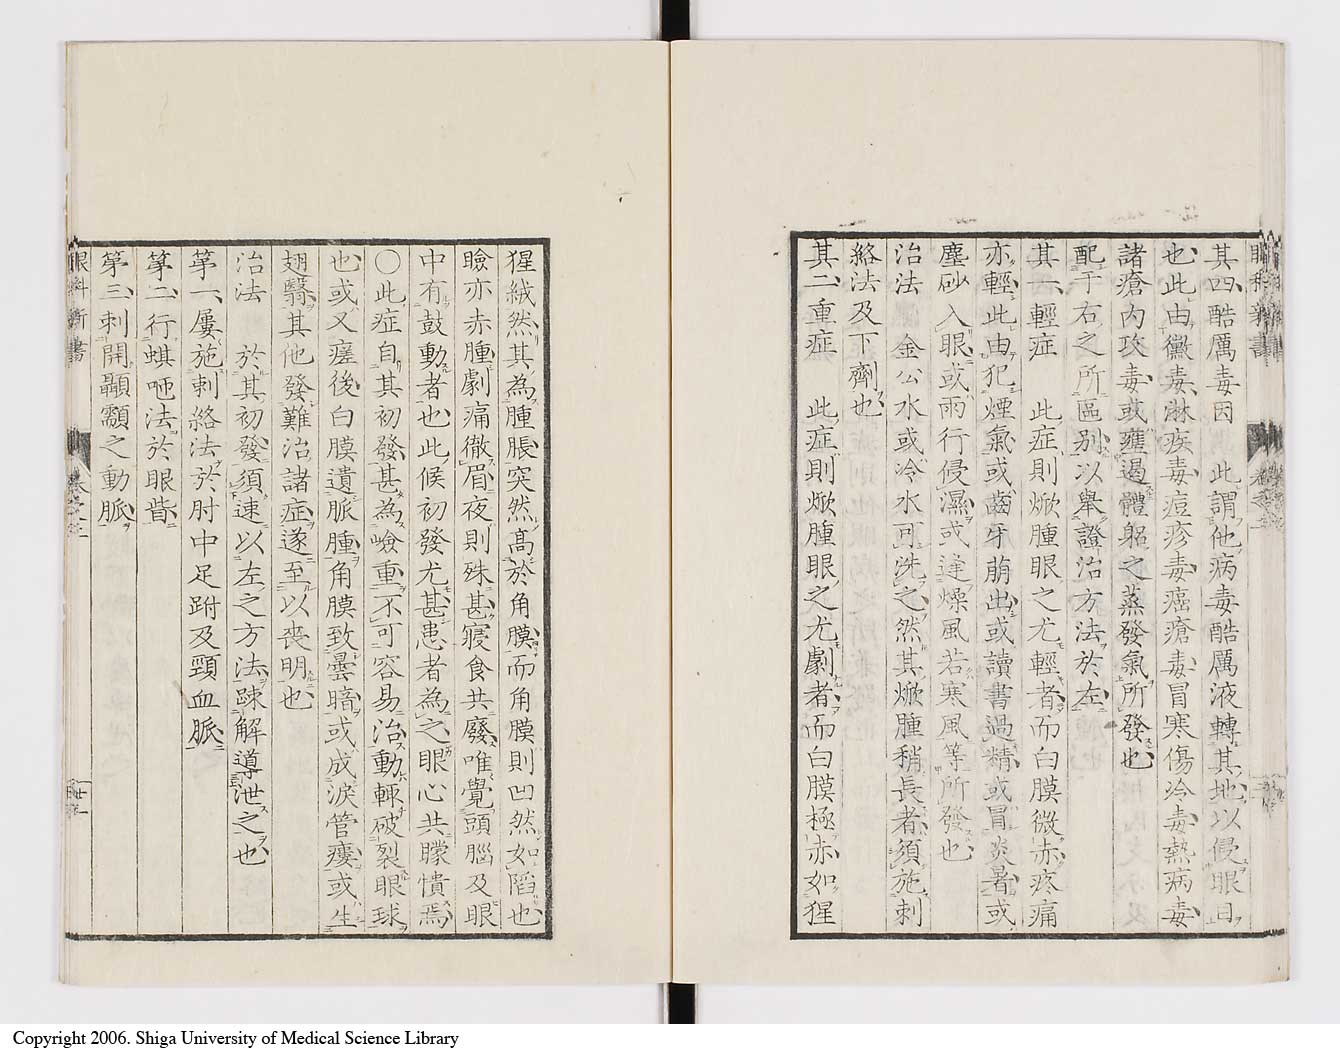 眼科新書
其四酷厲毒因 此謂他病毒酷厲液轉其地以侵眼目
也此由黴毒淋疾毒痘疹毒癌瘡毒冒寒傷冷毒熱病毒
諸瘡内攻毒或壅遏體躯之蒸發氣所發也
配于右之所區别以舉證治方法於左
其一輕症 此症則焮腫眼之尤輕者而白膜微赤疼痛
亦輕此由犯煙氣或齒牙萠出或讀書過精或冒炎暑或
塵砂入眼或雨行侵濕或逢燥風若寒風等所發也
治法 金公水或冷水可洗之然其焮腫稍長者須施刺
絡法及下劑也
其二重症 此症則焮腫眼之尤劇者而白膜極赤如猩
猩絨然其為腫脹突然髙於角膜而角膜則凹然如陷也
瞼亦赤腫劇痛徹眉夜則殊甚寢食共廢唯覺頭腦及眼
中有鼓動者也此候初發尤甚患者為之眼心共矇憒焉
〇此症自其初發甚為嶮重不可容易治動輙破裂眼球
也或又瘥後白膜遺脈腫角膜致曇暗或成淚管瘻或生
翅翳其他發難治諸症遂至以喪明也
治法 於其初發須速以左之方法疎解導泄之也
第一、屢施刺絡法於肘中足跗及頸血脈
第二、行蜞咂法於眼眥
第三、刺開顳顬之動脈
眼科新書 卷之二